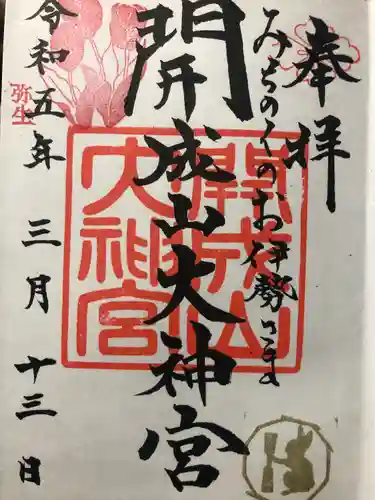 奉拝
みちのくのお伊勢さま
開成山大神宮
令和五年 三月 十三日
弥生
開成山大神宮